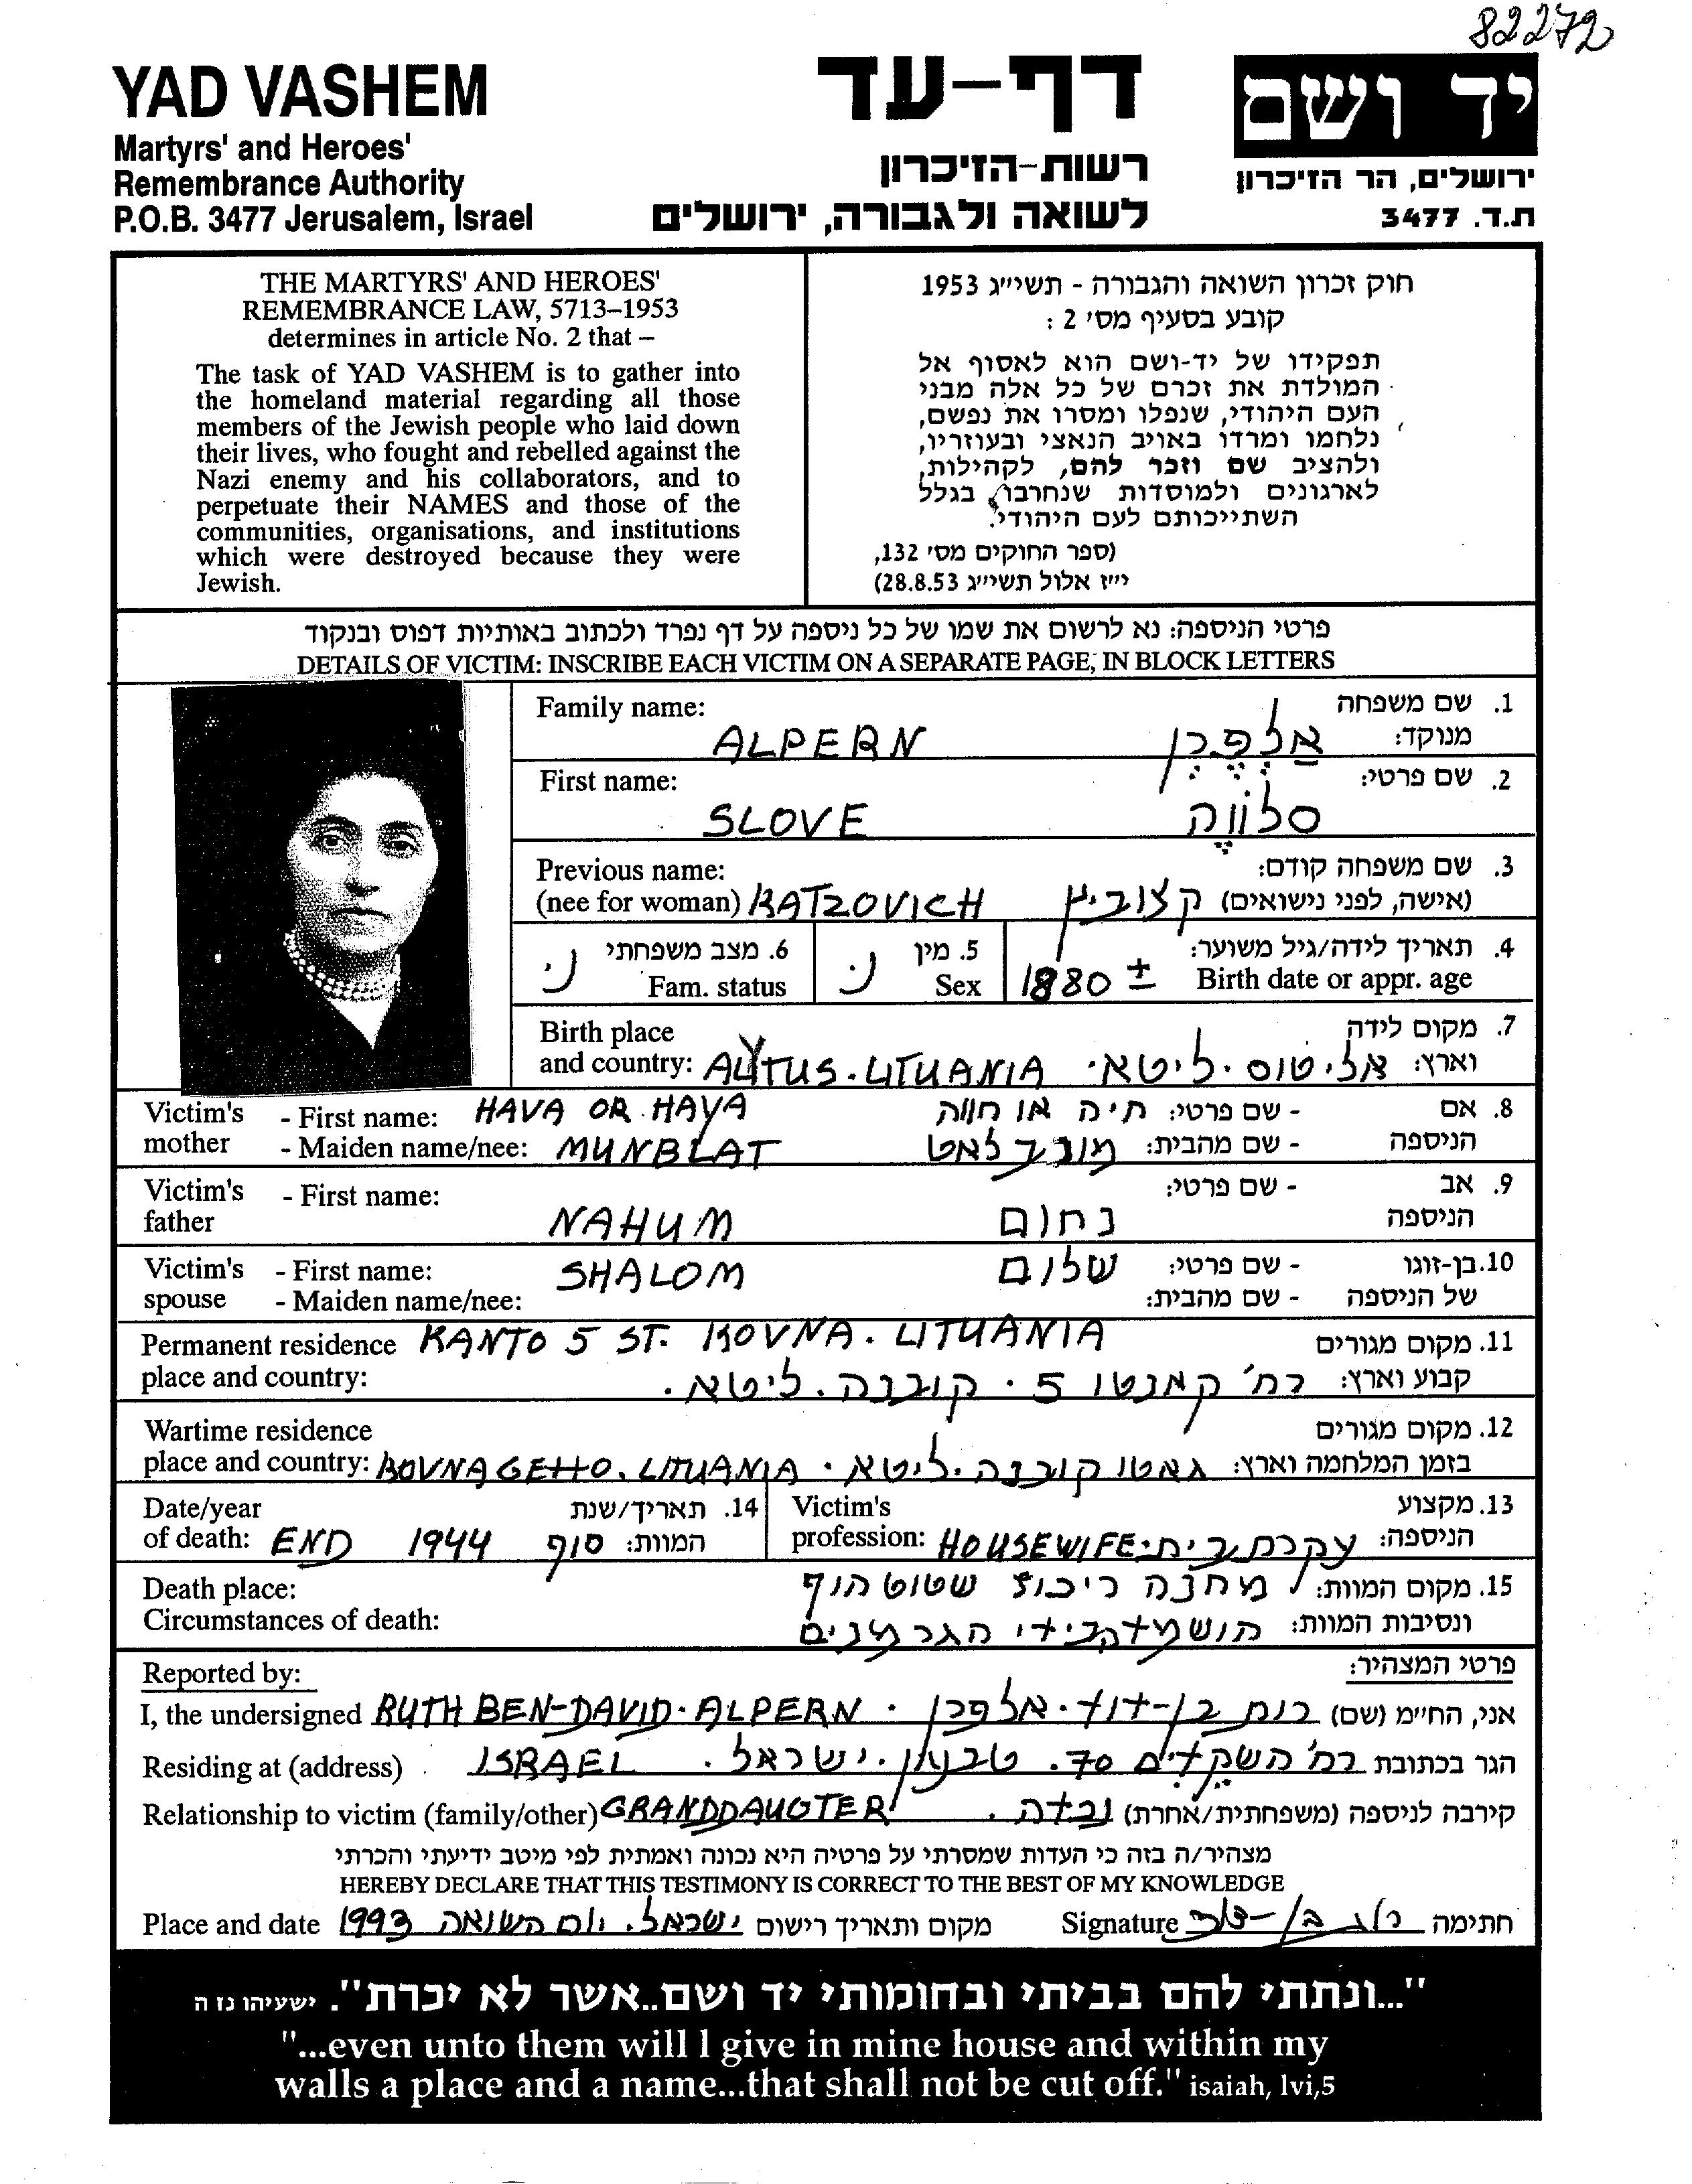 82272
YAD VASHEM
Martyrs' and Heroes'
Remembrance Authority
P.O.B. 3477 Jerusalem, Israel
דף-עד
רשות-הזיכרון
לשואה ולגבורה, ירושלים
יד ושם
ירושלים, הר הזיכרון
ת.ד. 3477
THE MARTYRS' AND HEROES'
REMEMBRANCE LAW, 5713–1953
determines in article No. 2 that –
The task of YAD VASHEM is to gather into
the homeland material regarding all those
members of the Jewish people who laid down
their lives, who fought and rebelled against the
Nazi enemy and his collaborators, and to
perpetuate their NAMES and those of the
communities, organisations, and institutions
which were destroyed because they were
Jewish.
חוק זכרון השואה והגבורה - תשי״ג 1953
קובע בסעיף מס׳ 2 :
תפקידו של יד-ושם הוא לאסוף אל
המולדת את זכרם של כל אלה מבני
העם היהודי, שנפלו ומסרו את נפשם,
נלחמו ומרדו באויב הנאצי ובעוזריו,
ולהציב שם וזכר להם, לקהילות,
לארגונים ולמוסדות שנחרבו בגלל
השתייכותם לעם היהודי.
(ספר החוקים מס׳ 132,
י״ז אלול תשי״ג 28.8.53)
פרטי הניספה: נא לרשום את שמו של כל ניספה על דף נפרד ולכתוב באותיות דפוס ובנקוד
DETAILS OF VICTIM: INSCRIBE EACH VICTIM ON A SEPARATE PAGE, IN BLOCK LETTERS
Family name: 1. שם משפחה
ALPERN אַלְפֶּרְן מנוקד:
First name: 2. שם פרטי:
SLOVE סלווֶה
Previous name: 3. שם משפחה קודם:
(nee for woman) KATZOVICH קצוביץ (אישה, לפני נישואים)
4. תאריך לידה/גיל משוער: 5. מין 6. מצב משפחתי
Birth date or appr. age 1880 ± Sex נ. Fam. status נ.
Birth place 7. מקום לידה
and country: ALYTUS. LITUANIA אליטוס. ליטא. וארץ:
Victim's - First name: HAVA OR HAYA חיה או חווה - שם פרטי: 8. אם
mother - Maiden name/nee: MUNBLAT מונבלאט - שם מהבית: הניספה
Victim's - First name: - שם פרטי: 9. אב
father NAHUM נחום הניספה
Victim's - First name: SHALOM שלום - שם פרטי: 10. בן-זוגו
spouse - Maiden name/nee: - שם מהבית: של הניספה
Permanent residence KANTO 5 ST. KOVNA. LITUANIA 11. מקום מגורים
place and country: רח׳ קאנטו 5. קובנה. ליטא. קבוע וארץ:
Wartime residence 12. מקום מגורים
place and country: KOVNA GETTO. LITUANIA. גאטו קובנה. ליטא. בזמן המלחמה וארץ:
Date/year 14. תאריך/שנת Victim's 13. מקצוע
of death: END 1944 סוף המוות: profession: HOUSEWIFE. עקרת בית הניספה:
Death place: מחנה ריכוז שטוטהוף 15. מקום המוות:
Circumstances of death: הושמדה בידי הגרמנים ונסיבות המוות:
Reported by: פרטי המצהיר:
I, the undersigned RUTH BEN-DAVID-ALPERN. רות בן-דוד-אלפרן אני, החי״מ (שם)
Residing at (address) ISRAEL. רח׳ השקדים 70. טבעון. ישראל. הגר בכתובת
Relationship to victim (family/other) GRANDDAUGTER נכדה. קירבה לניספה (משפחתית/אחרת)
מצהיר/ה בזה כי העדות שמסרתי על פרטיה היא נכונה ואמתית לפי מיטב ידיעתי והכרתי
HEREBY DECLARE THAT THIS TESTIMONY IS CORRECT TO THE BEST OF MY KNOWLEDGE
Place and date ישראל. יום השואה 1993 מקום ותאריך רישום Signature רות בן-דוד חתימה
"...ונתתי להם בביתי ובחומותי יד ושם..אשר לא יכרת". ישעיהו נז ה
"...even unto them will I give in mine house and within my
walls a place and a name...that shall not be cut off." isaiah, lvi,5